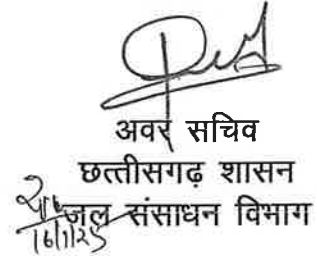 अवर सचिव
छत्तीसगढ़ शासन
जल संसाधन विभाग
16/1/25